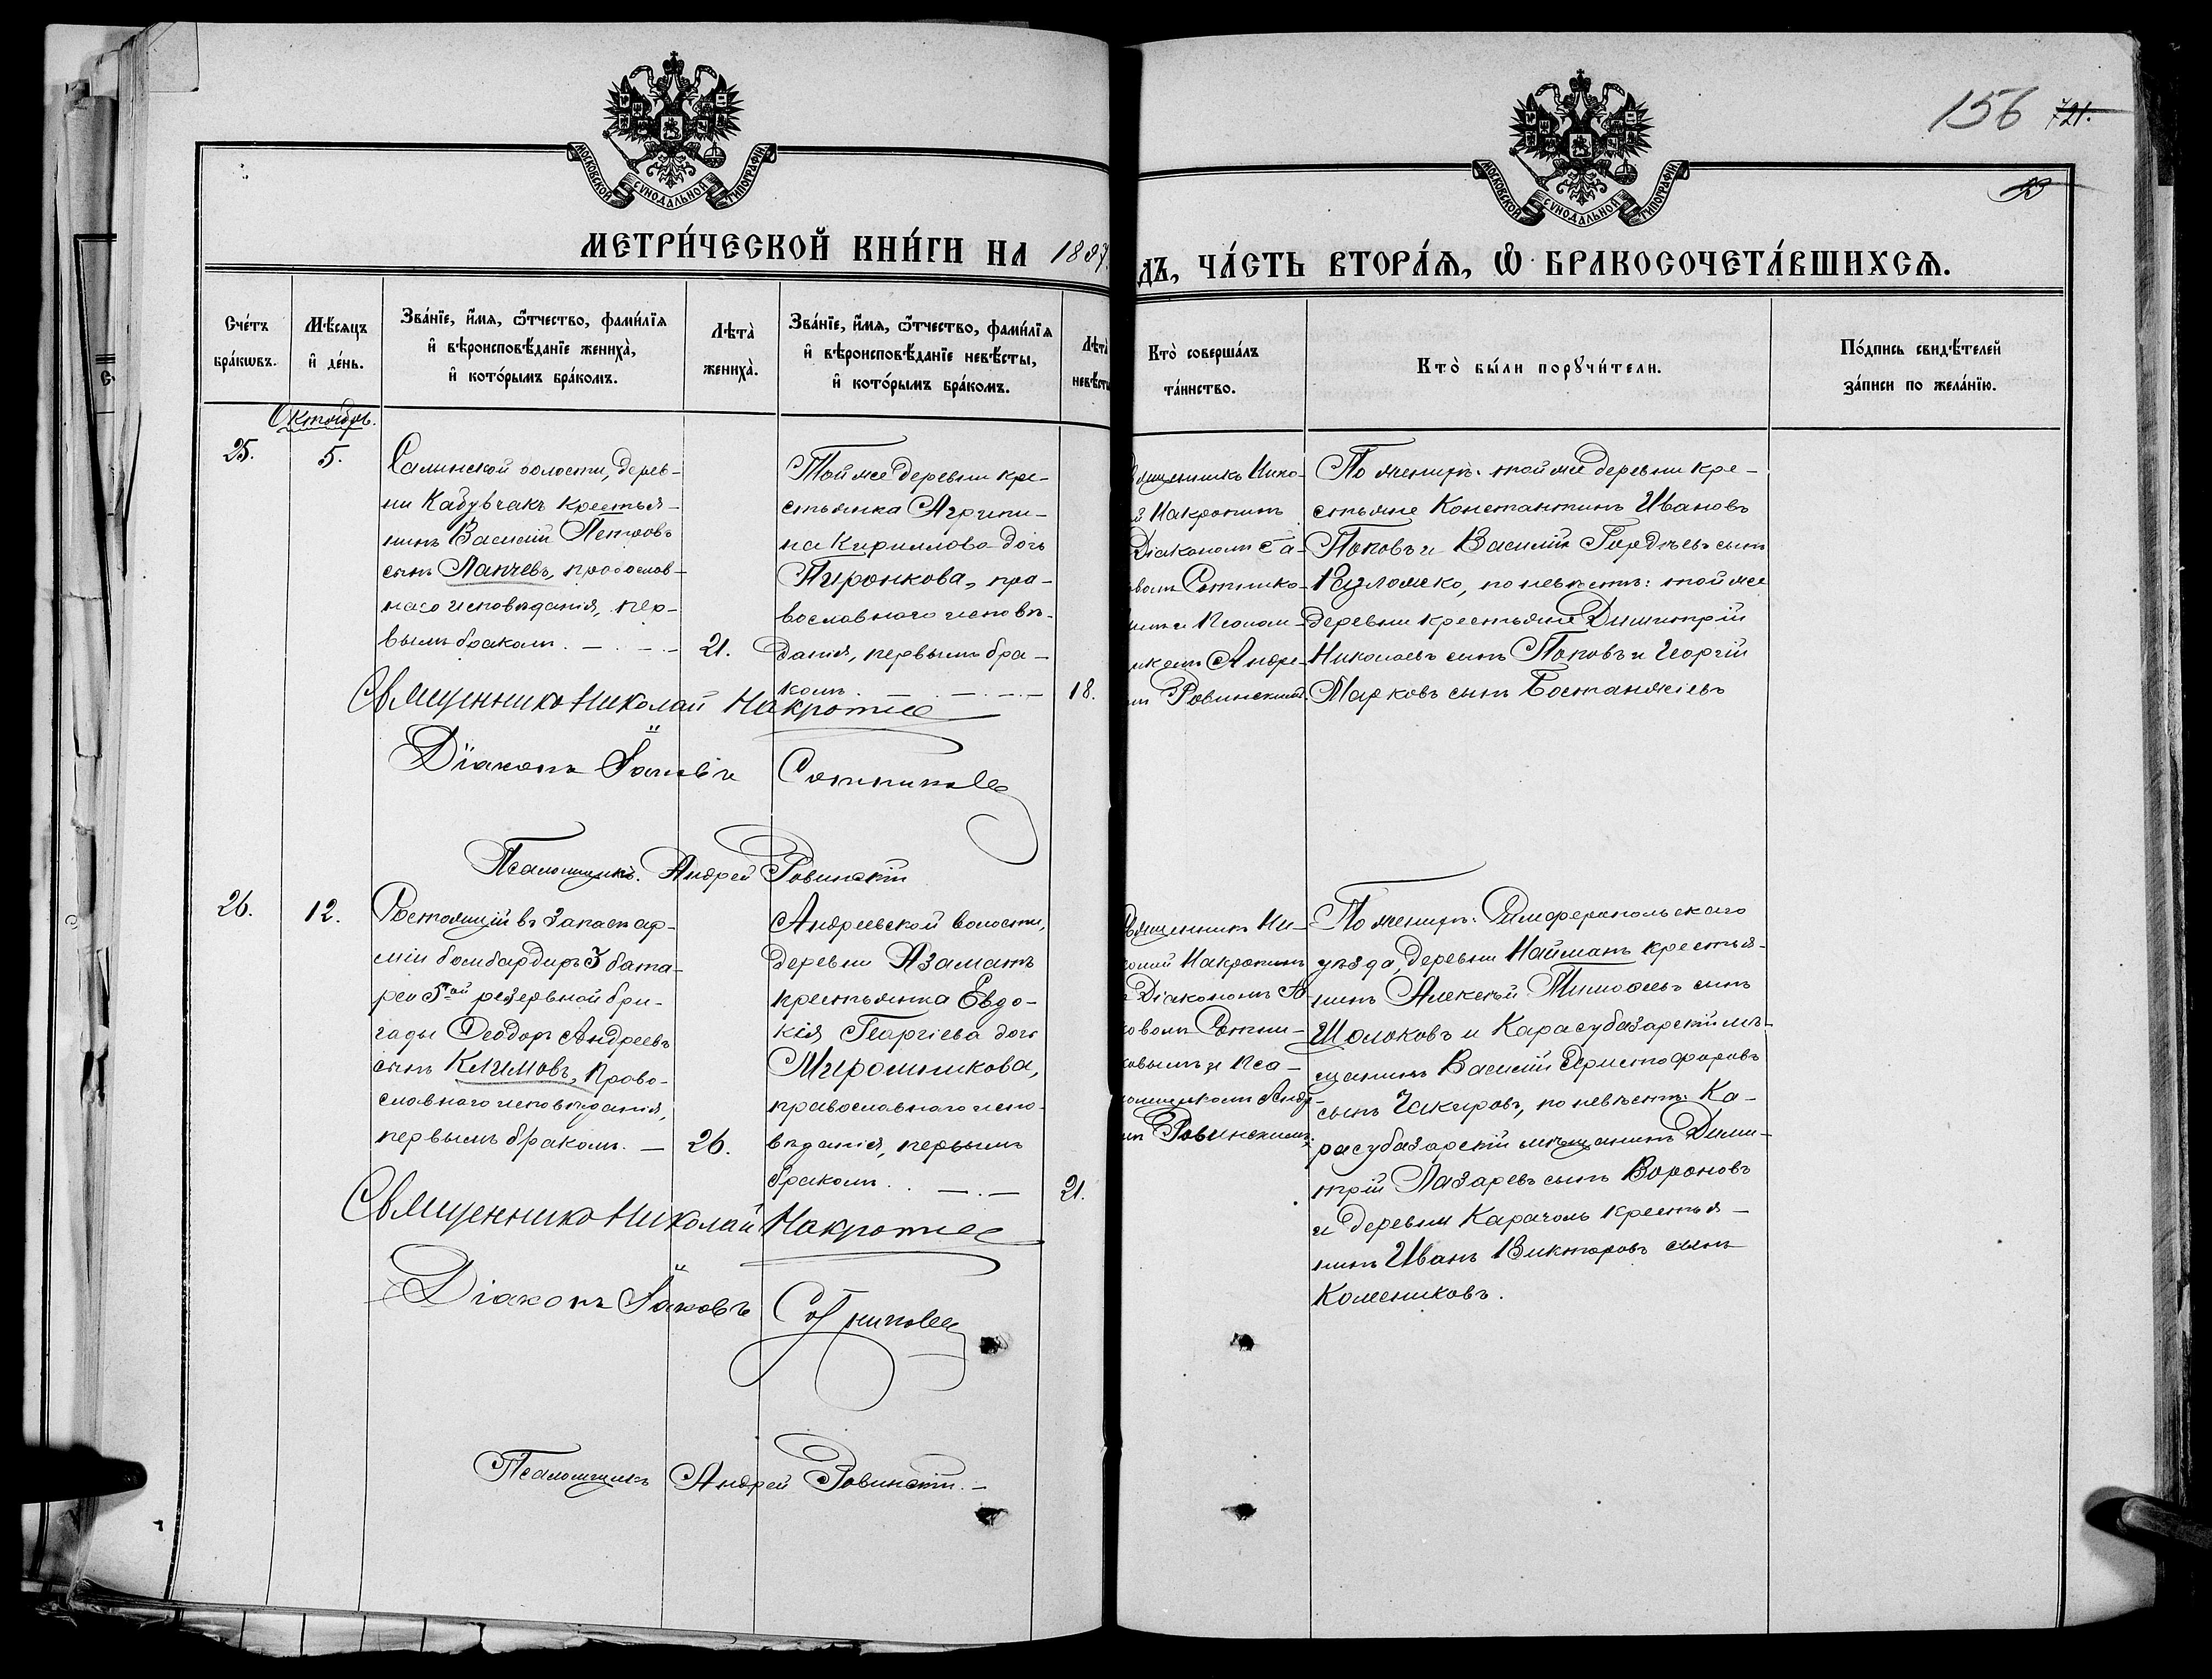 156 721.
МОСКОВСКОЙ СУНОДАЛЬНОЙ ТИПОГРАФІИ
МОСКОВСКОЙ СУНОДАЛЬНОЙ ТИПОГРАФІИ
МЕТРИ́ЧЕСКОЙ КНИ́ГИ НА 1897.
ДЪ, ЧА́СТЬ ВТОРА́Ѧ, Ѡ БРАКОСОЧЕТА́ВШИХСѦ.
Сче́тъ
бра́кѡвъ.
Мѣ́сяцъ
и҆ де́нь.
Зва́нїе, и҆́мя, ѻ҆́тчество, фами́лїя
и҆ вѣроисповѣ́данїе жениха̀,
и҆ кото́рымъ бра́комъ.
Лѣта̀
жениха̀.
Зва́нїе, и҆́мя, ѻ҆́тчество, фами́лїя
и҆ вѣроисповѣ́данїе невѣ́сты,
и҆ кото́рымъ бра́комъ.
Лѣта̀
невѣ́сты
Кто̀ соверша́лъ
та́инство.
Кто̀ бы́ли порꙋчи́тели.
По́дпись свидѣ́телей
за́писи по жела́нїю.
Октябрь.
25.
5.
Салинской волости, дерев-
ни Кабурчакъ крестья-
нинъ Василій Петровъ
сынъ Лапчевъ, православ-
наго исповѣданія, пер-
вымъ бракомъ. — . — . —
21.
Той же деревни кре-
стьянка Агрипи-
на Кириллова дочь
Пиронкова, пра-
вославнаго исповѣ-
данія, первымъ бра-
комъ. — . — . —
18.
Священникъ Нико-
й Накропинъ
Діакономъ Іа-
вомъ Сотнико-
вымъ и Псалом-
икомъ Андре-
мъ Ровинскимъ.
По женихѣ: той же деревни кре-
стьяне Константинъ Ивановъ
Поповъ и Василій Гордѣевъ сынъ
, по невѣстѣ: той же
деревни крестьяне Димитрій
Николаевъ сынъ Поповъ и Георгій
Марковъ сынъ Бостанжіевъ
Священникъ Николай Накропинъ
Діаконъ Іаковъ Сотниковъ
Псаломщикъ. Андрей Ровинскій
26.
12.
Состоящій въ запасѣ ар-
міи бомбардиръ 3 бата-
реи 5той резервной бри-
гады Ѳеодоръ Андреевъ
сынъ Климовъ, Право-
славнаго исповѣданія,
первымъ бракомъ. —
26.
Андреевской волости,
деревни Азаматъ
крестьянка Евдо-
кія Георгіева дочь
Мирошникова,
православнаго испо-
вѣданія, первымъ
бракомъ. . — . —
21.
Священникъ Ни-
колай Накропинъ
Діакономъ Іа-
ковомъ Сотни-
ковымъ и Пса-
ломщикомъ Андр-
мъ Ровинскимъ.
По женихѣ: Симферопольскаго
уѣзда, деревни Найманъ крестья-
нинъ Алексѣй Тимофеевъ сынъ
Шолоховъ и Карасубазарскій мѣ-
щанинъ Василій Христофоровъ
сынъ Чакировъ, по невѣстѣ: Ка-
расубазарскій мѣщанинъ Дими-
трій Лазаревъ сынъ Вороновъ
и деревни Карачоль крестья-
нинъ Иванъ Викторовъ сынъ
Колесниковъ.
Священникъ Николай Накропинъ
Діаконъ Іаковъ Сотниковъ
Псаломщикъ Андрей Ровинскій. —